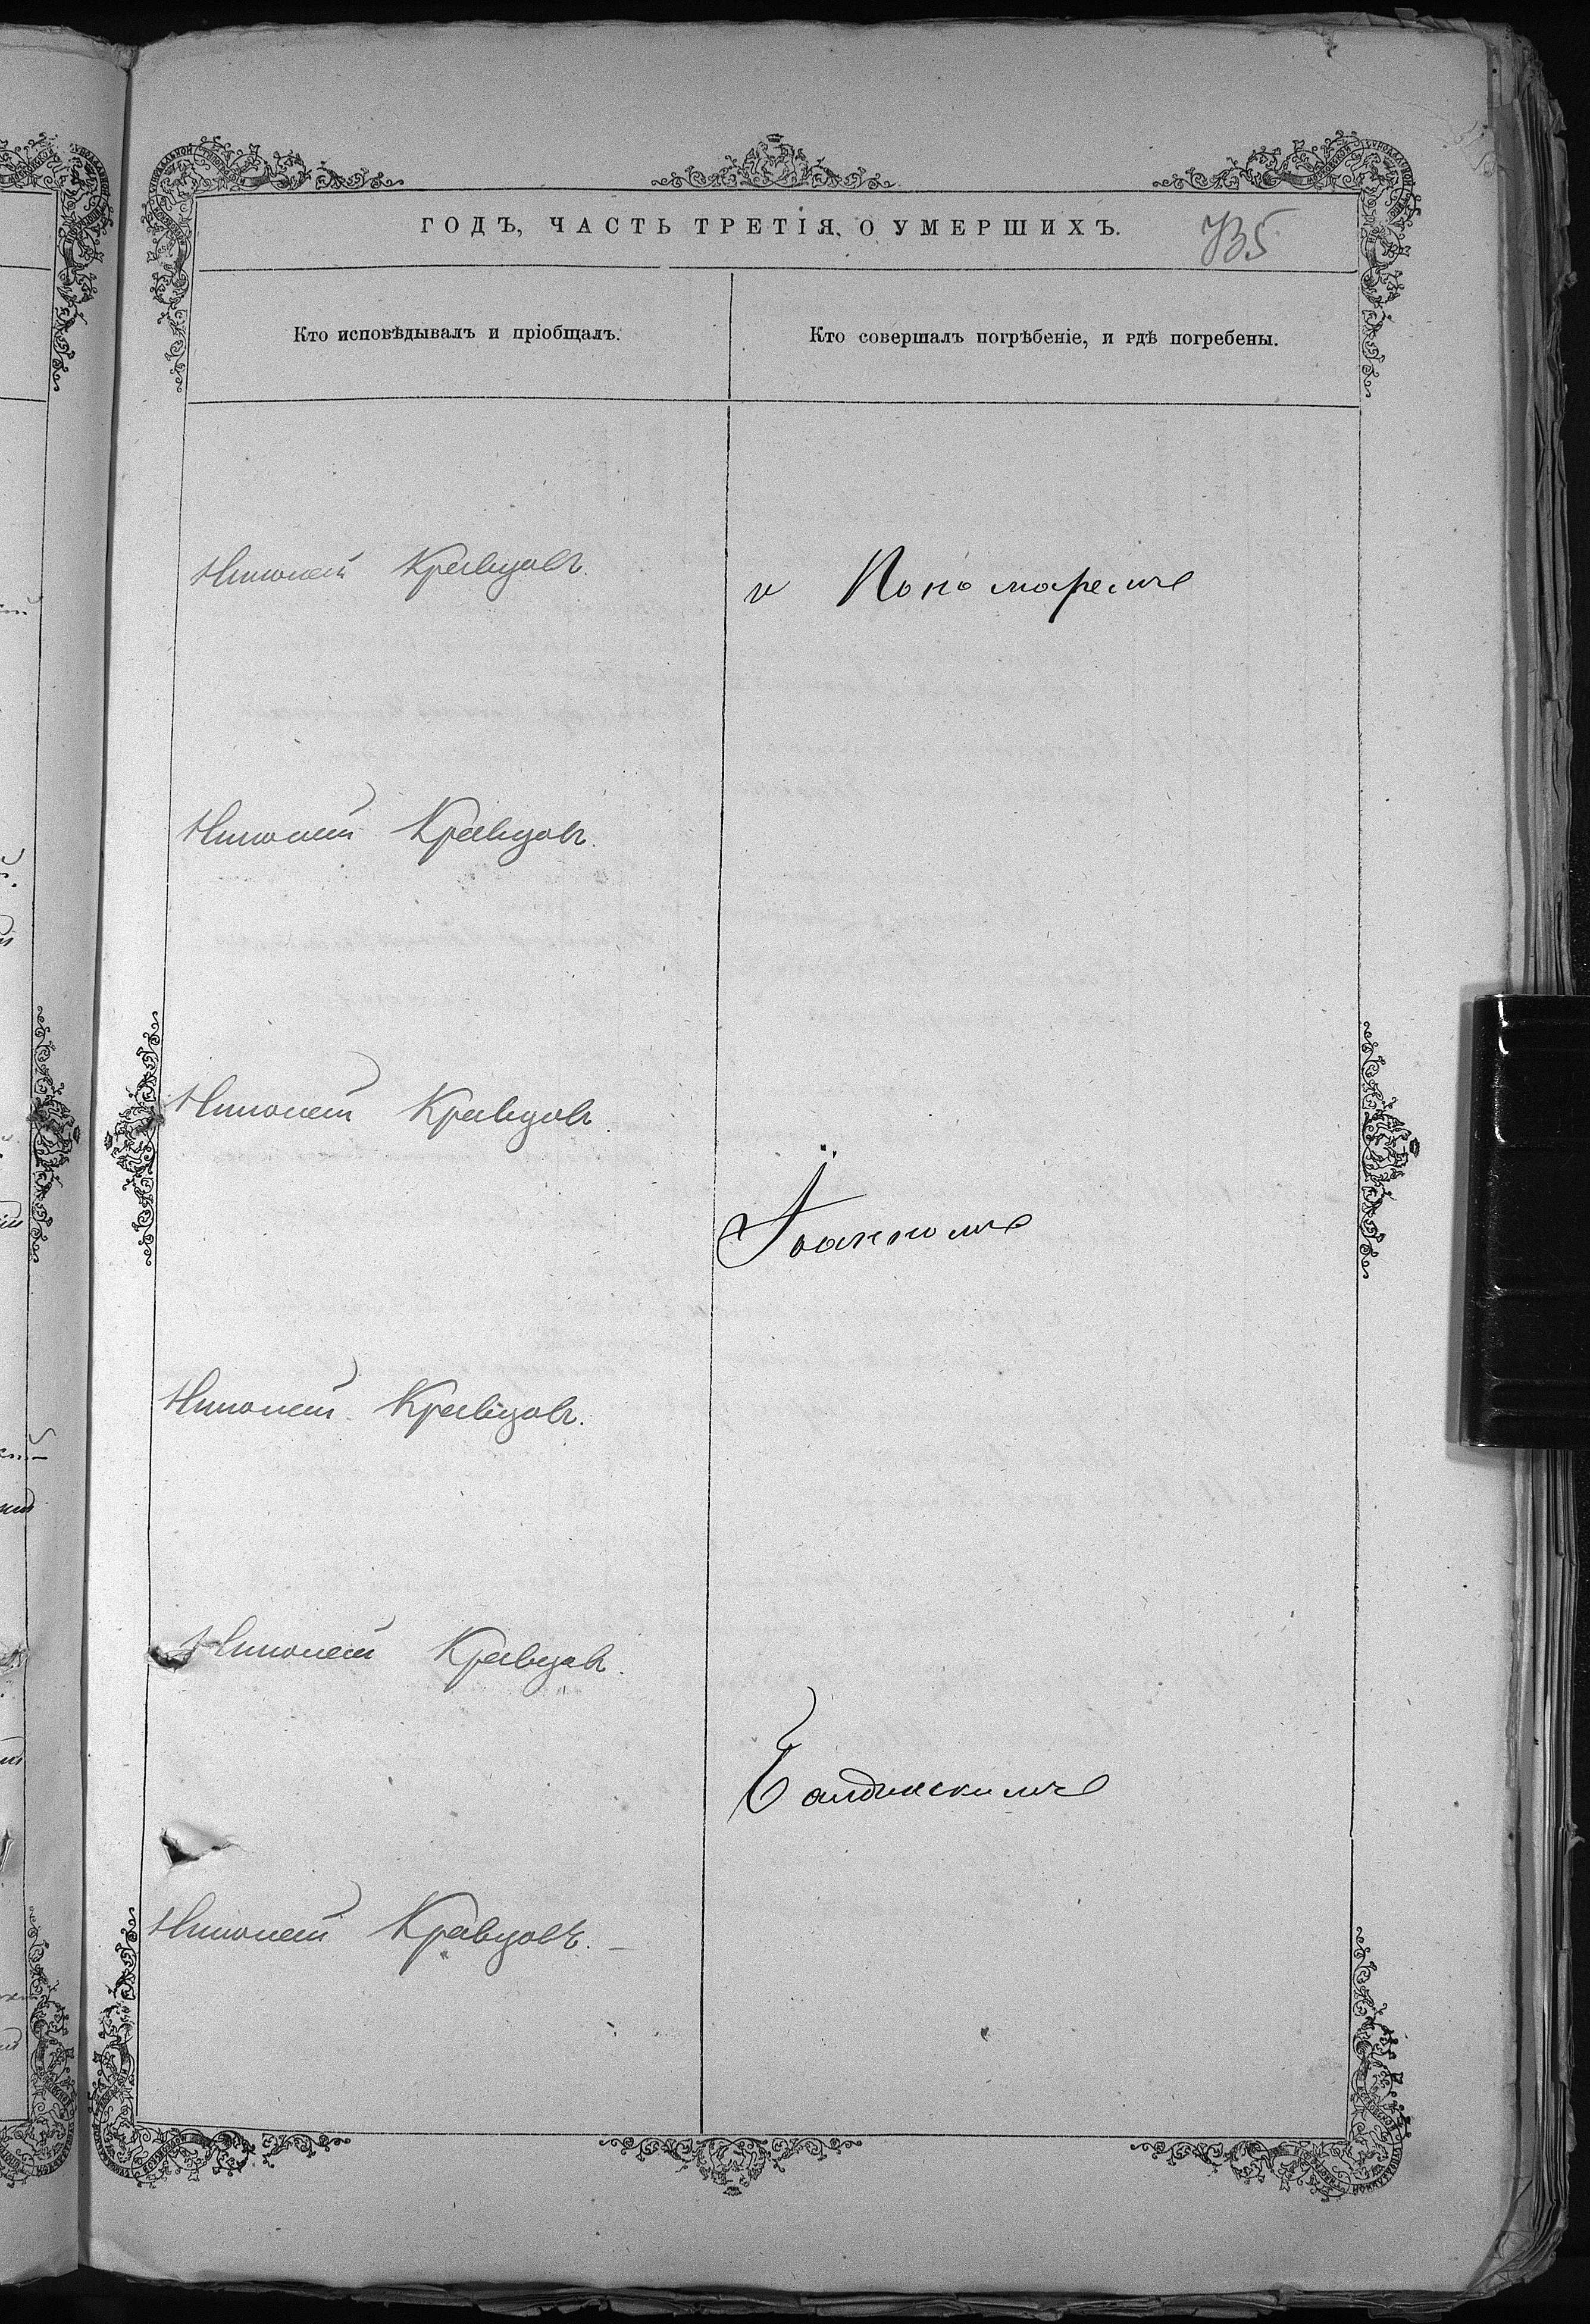 ГОДЪ, ЧАСТЬ ТРЕТІЯ, О УМЕРШИХЪ.
735
Кто исповѣдывалъ и пріобщалъ.
Кто совершалъ погрѣбеніе, и гдѣ погребены.
Николай Кравцовъ.
и Пономаремъ
Николай Кравцовъ.
Николай Кравцовъ.
Іоанномъ
Николай Кравцовъ.
Николай Кравцовъ.
Николай Кравцовъ.